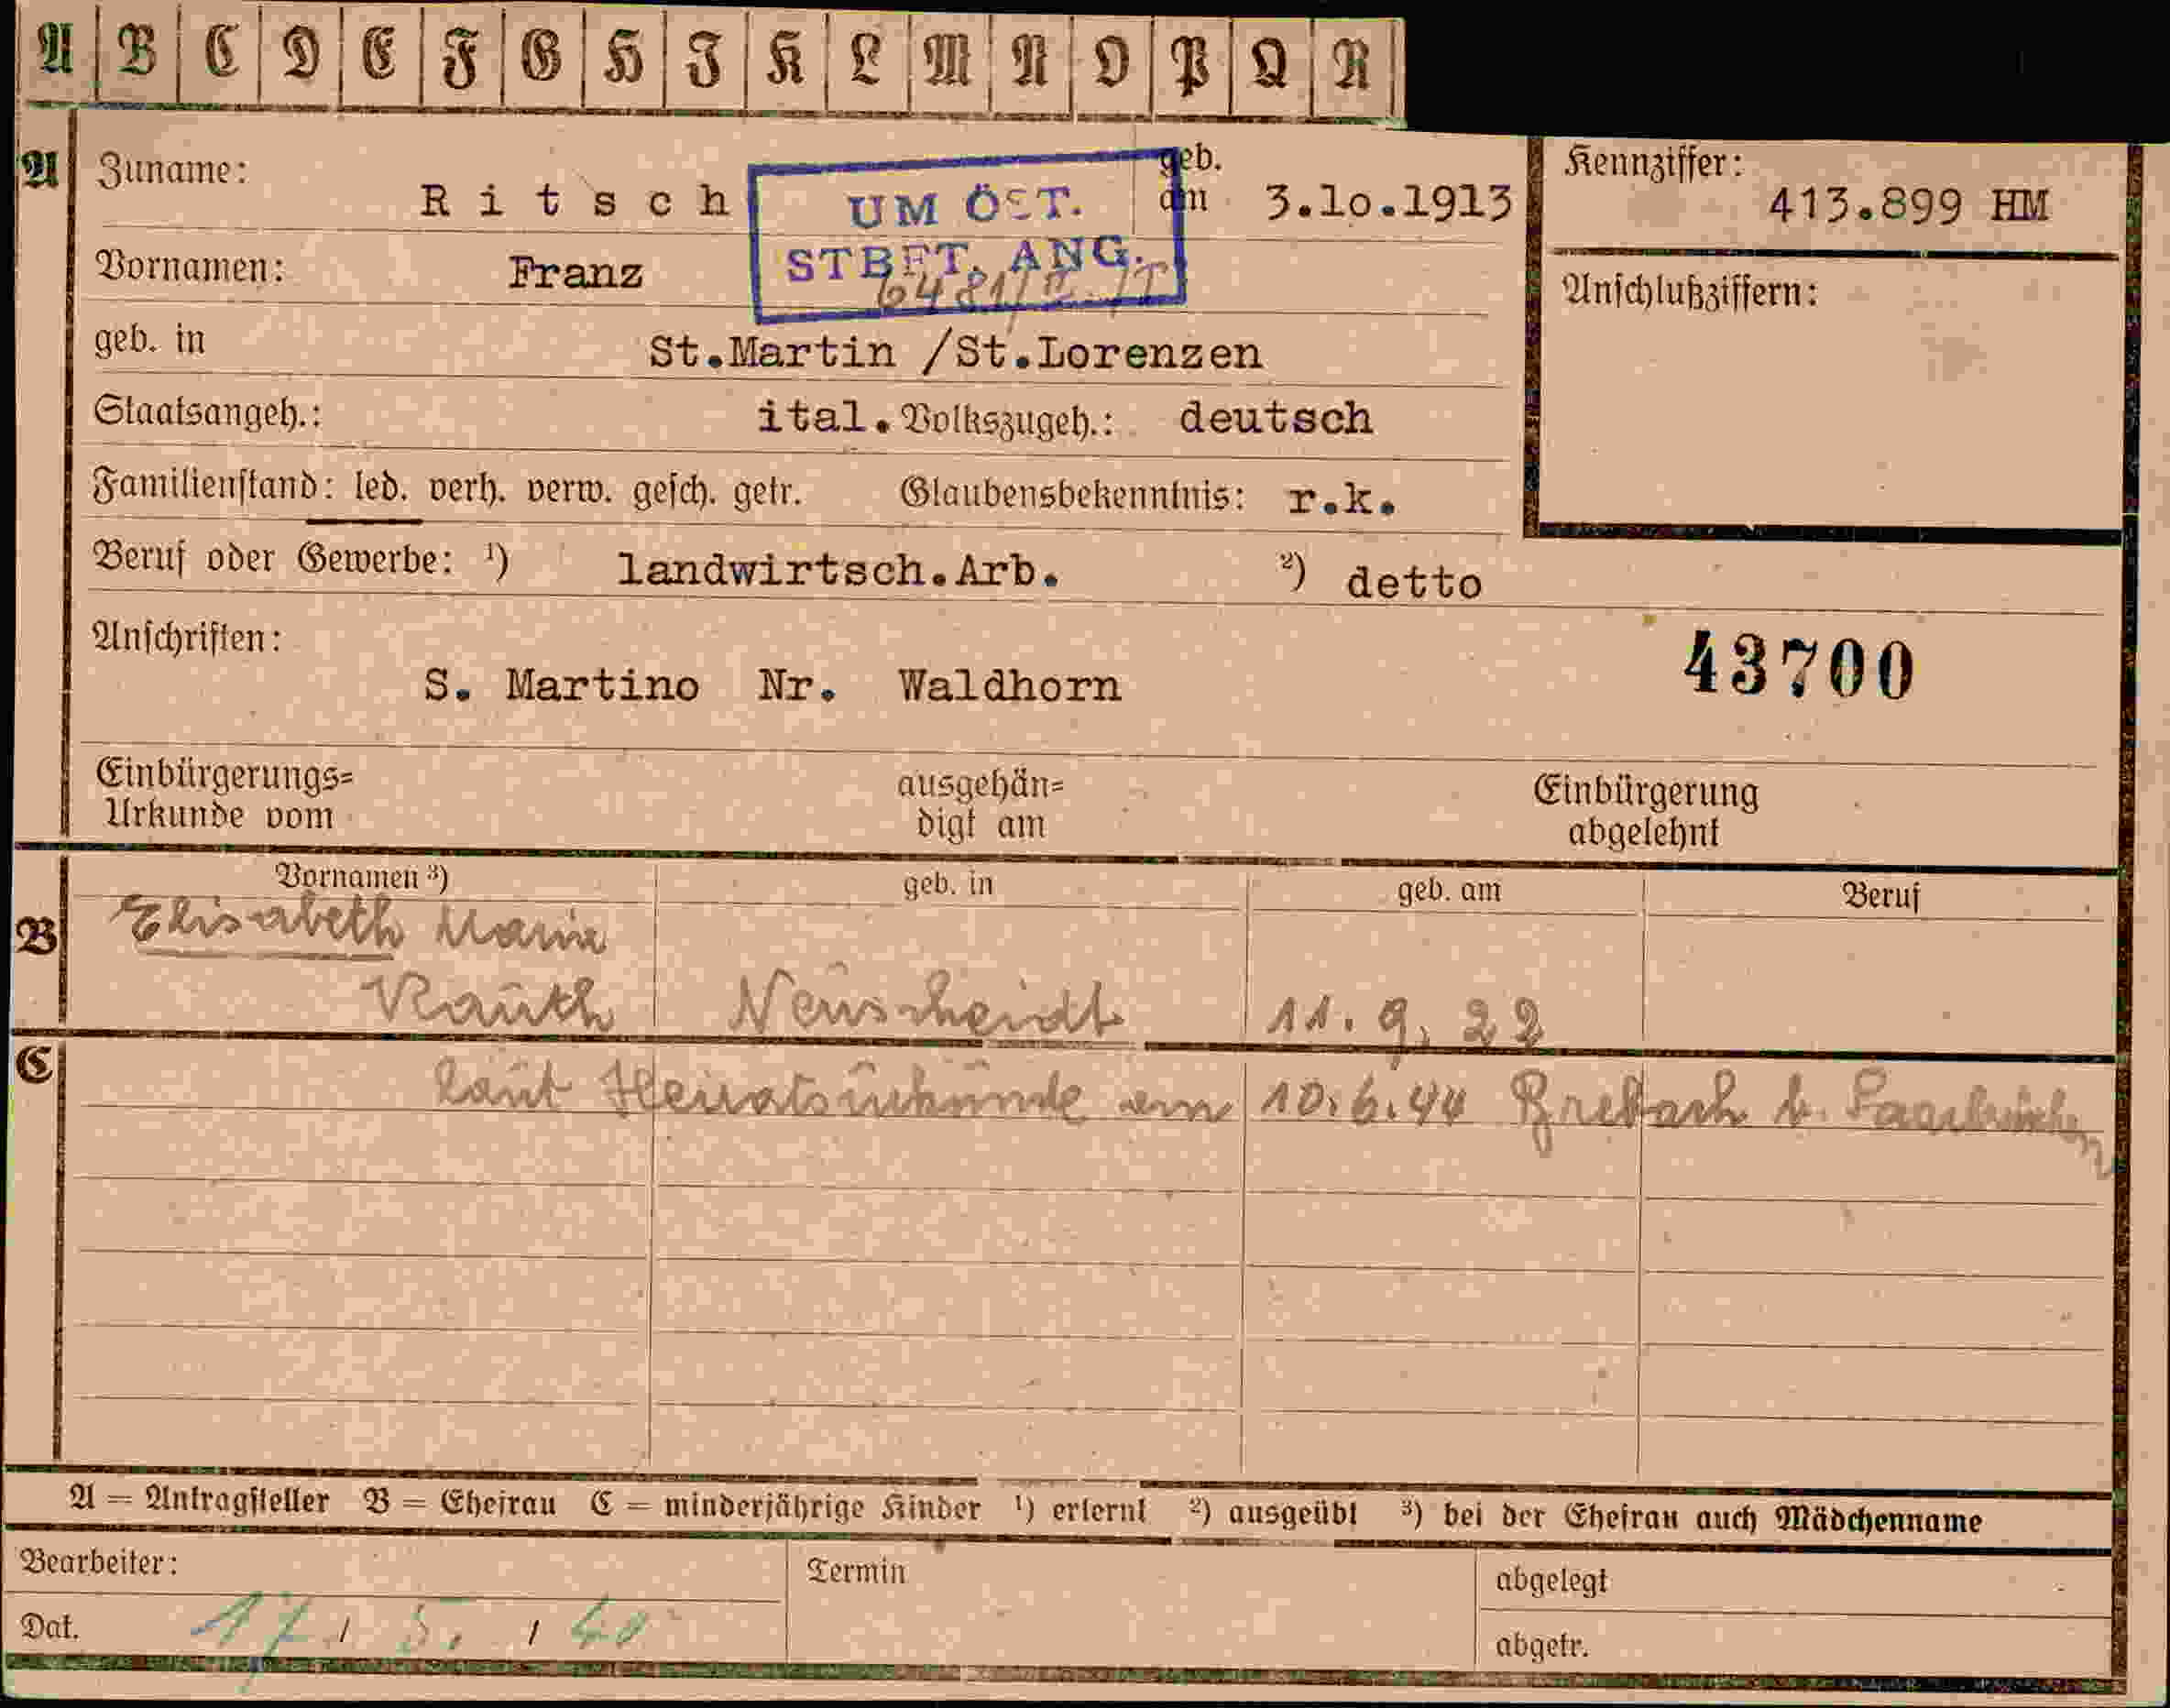 A B C D E F G H J K L M N O P Q R
A Zuname: R i t s c h geb. am 3.10.1913 Kennziffer: 413.899 HM
UM ÖST.
STBET. ANG.
Vornamen: Franz
Anschlußziffern:
geb. in St.Martin /St.Lorenzen
Staatsangeh.: ital. Volkszugeh.: deutsch
Familienstand: led. verh. verw. gesch. getr. Glaubensbekenntnis: r.k.
Beruf oder Gewerbe: ¹) landwirtsch.Arb. ²) detto
Anschriften:
43700
S. Martino Nr. Waldhorn
Einbürgerungs= ausgehän= Einbürgerung
Urkunde vom digt am abgelehnt
Vornamen ³) geb. in geb. am Beruf
B Elisabeth Marie
Rauth Neuscheidt 11. 9. 22
C laut Heiratsurkunde am 10.6.44 Brebach b. Saarbrücken
A = Antragsteller B = Ehefrau C = minderjährige Kinder ¹) erlernt ²) ausgeübt ³) bei der Ehefrau auch Mädchenname
Bearbeiter: Termin abgelegt
Dat. 17 / 5. / 40 abgetr.